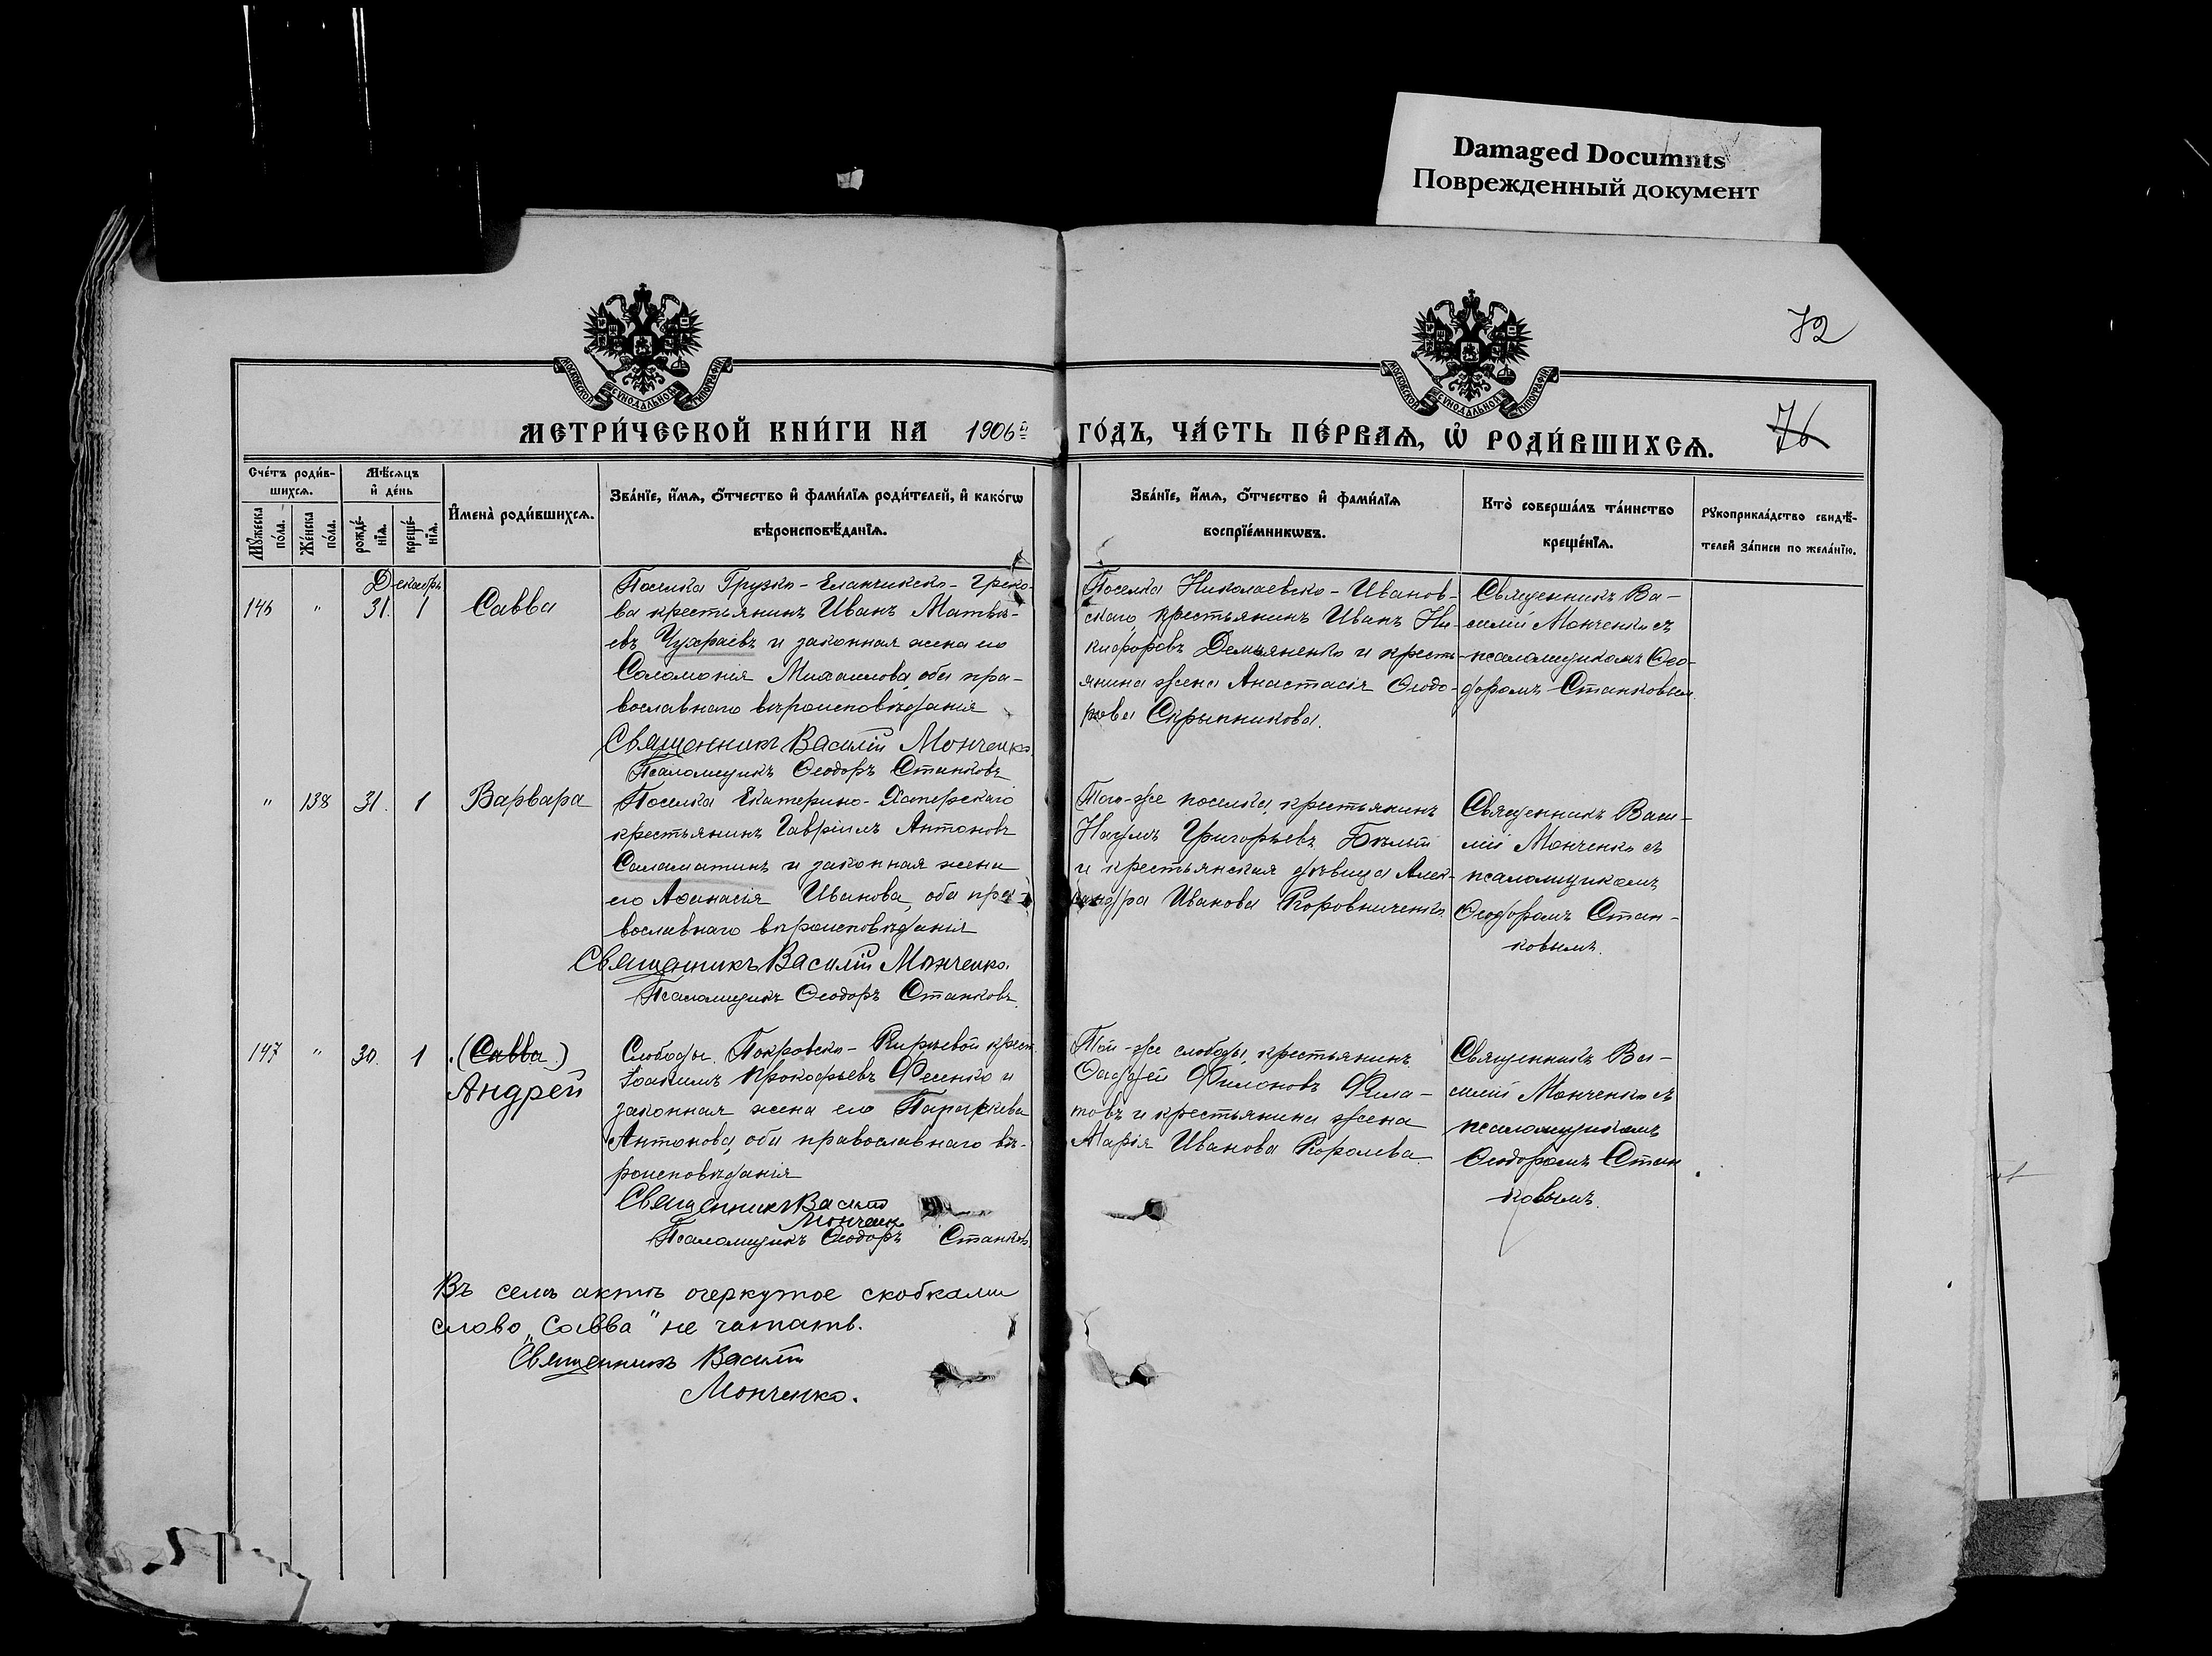 Damaged Documnts
Поврежденный документ
72
МОСКОВСКОЙ СѴНОДАЛЬНОЙ ТИПОГРАФІИ
МОСКОВСКОЙ СѴНОДАЛЬНОЙ ТИПОГРАФІИ
МЕТРИ́ЧЕСКОЙ КНИ́ГИ НА 1906й ГО́ДЪ, ЧА́СТЬ ПЕ́РВАѦ, Ѡ҆ РОДИ́ВШИХСѦ.
76
Сче́тъ роди́в-
шихсѧ.
Мꙋ́жеска по́ла.
Же́нска по́ла.
Мѣ́сѧцъ
и҆ де́нь
рожде́-нїѧ.
креще́-нїѧ.
И҆мена̀ роди́вшихсѧ.
Зва́нїе, и҆́мѧ, ѻ҆́тчество и҆ фами́лїѧ роди́телей, и҆ како́гѡ
вѣроисповѣ́данїѧ.
Зва́нїе, и҆́мѧ, ѻ҆́тчество и҆ фами́лїѧ
воспрїе́мникѡвъ.
Кто̀ соверша́лъ та́инство
креще́нїѧ.
Рꙋкоприкла́дство свидѣ́-
телей за́писи по жела́нїю.
Декабрь
146 " 31. 1 Савва
Поселка Грузко-Еланчикско-Греко-
ва крестьянинъ Иванъ Матвѣ-
евъ Чухраевъ и законная жена его
Соломонія Михаилова, оба пра-
вославнаго вѣроисповѣданія
Священникъ Василій Мончепко
Псаломщикъ Ѳеодоръ Станковъ
Поселка Николаевско-Иванов-
скаго крестьянинъ Иванъ Ни-
кифоровъ Демьяненко и кресть-
янина жена Анастасія Ѳеодо-
рова Скрыпникова.
Священникъ Ва-
силій Мончепко съ
псаломщикомъ Ѳео-
доромъ Станковым
" 138 31. 1 Варвара
Поселка Екатерино-Хаперскаго
крестьянинъ Гавріилъ Антоновъ
Саламатинъ и законная жена
его Аѳанасія Иванова, оба пра-
вославнаго вѣроисповѣданія
Священникъ Василій Мончепко.
Псаломщикъ Ѳеодоръ Станковъ.
Того-же поселка, крестьянинъ
Наумъ Григорьевъ Бѣлый
и крестьянская дѣвица Алек-
сандра Иванова Коровниченко
Священникъ Васи-
лій Мончепко съ
псаломщикомъ
Ѳеодоромъ Стан-
ковымъ.
147 " 30. 1 (Савва)
Андрей
Слободы Покровско-Кирѣевой крест.
Іоакимъ Прокофьевъ Фесенко и
законная жена его Параскева
Антонова, оба православнаго вѣ-
роисповѣданія
Священникъ Василій
Мончепко
Псаломщикъ Ѳеодоръ Станковъ.
Той-же слободы, крестьянинъ
Ѳаддей Филоновъ Фила-
товъ и крестьянина жена
Марія Иванова Королева.
Священникъ Ва-
силій Мончепко съ
псаломщикомъ
Ѳеодоромъ Стан
ковымъ.
Въ семъ актѣ очеркутое скобками
слово „Савва" не читать.
Священникъ Василій
Мончепко.